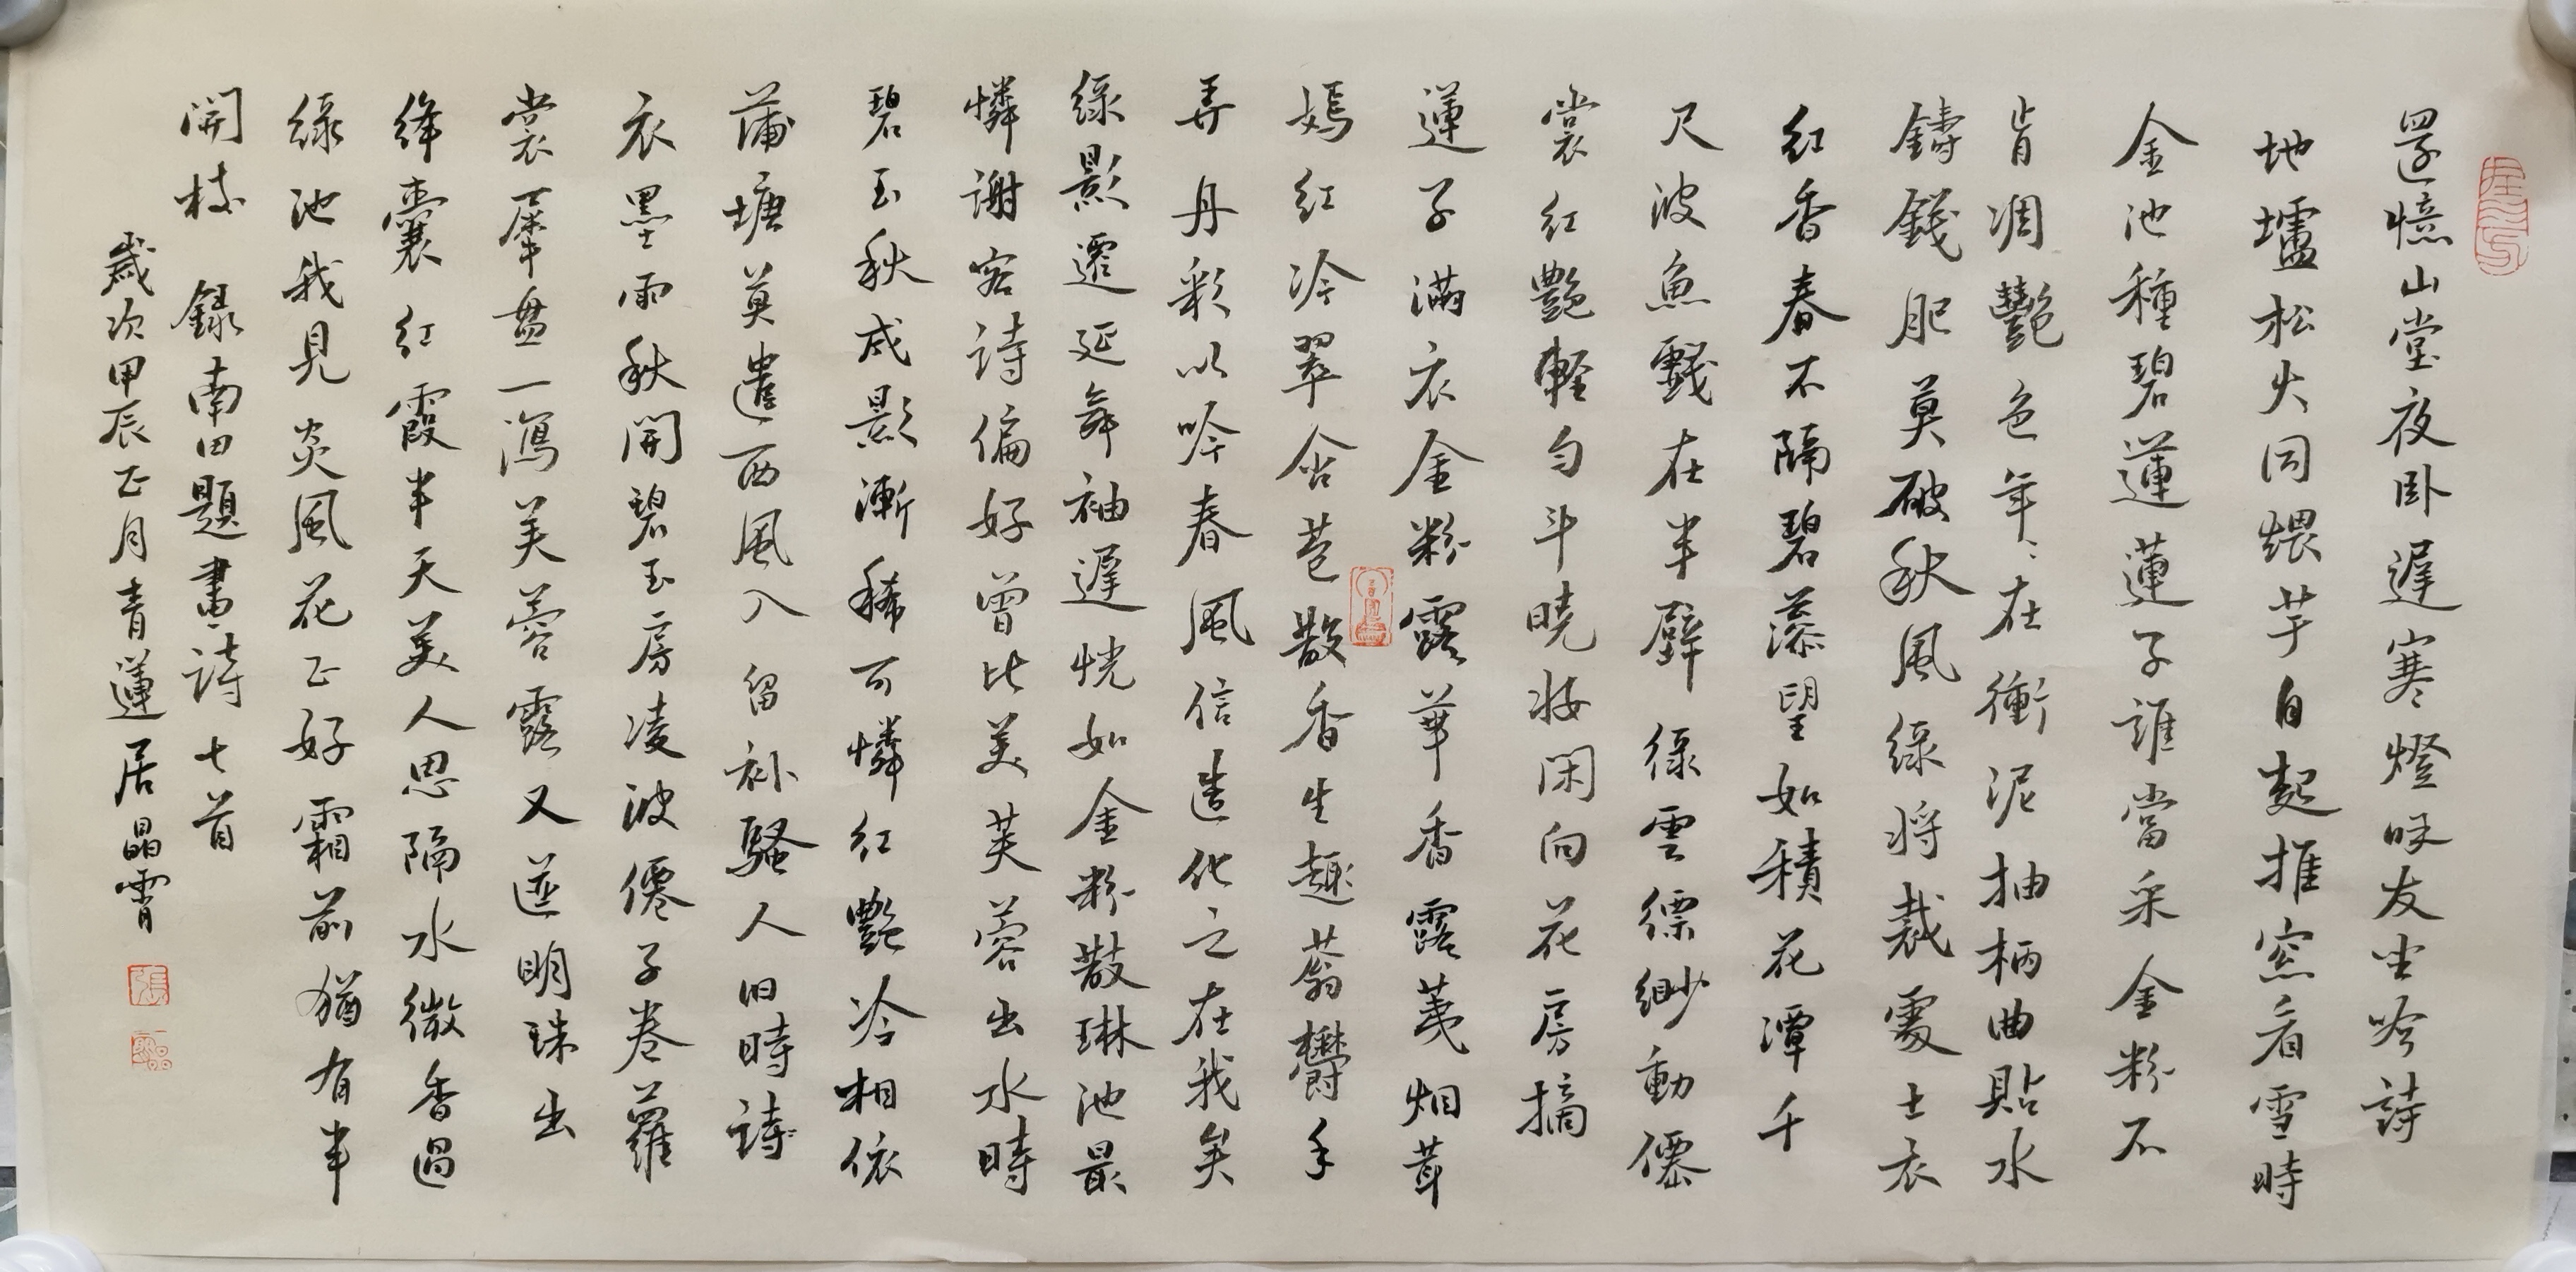 還憶山堂夜卧遲寒燈呼友坐吟詩
地壚松火同煨芋自起推窓看雪時
金池種碧蓮蓮子誰當采金粉不
肯凋艷色年〻在衝泥抽柄曲貼水
鑄錢肥莫破秋風緑將裁處士衣
紅香春不隔碧藻望如積花潭千
尺波魚戲在半壁緑雲縹緲動僊
裳紅艷輕勻斗曉妝閑向花房摘
蓮子滿衣金粉露華香露荑烟茸
嫣紅冷翠含葩散香生趣蓊鬱手
弄丹彩以吟春風信造化之在我矣
緑影遷延舞袖遲恍如金粉散琳池最
憐謝客詩偏好曾比美芙蓉出水時
碧玉秋成影漸稀可憐紅艷冷相依
蒲塘莫遣西風入留補騷人旧時詩
衣墨雨秋開碧玉房凌波僊子卷蘿
裳犀盘一瀉芙蓉露又迸明珠出
絳囊紅霞半天美人思隔水微香過
緑池我見炎風花正好霜前猶有半
開枝 録南田題畫詩七首
歲次甲辰正月青蓮居晶霄